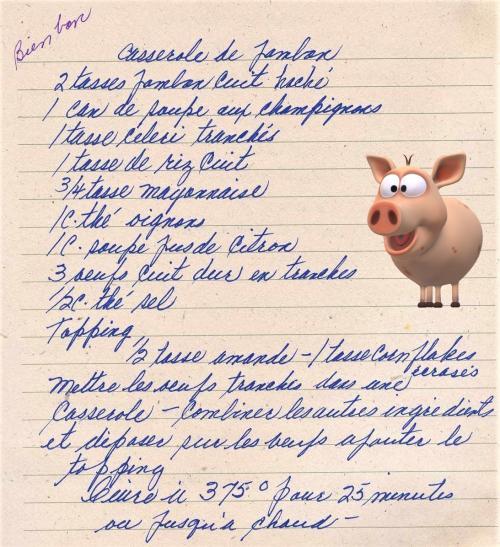 Bien bon
Casserole de Jambon
2 tasses Jambon Cuit haché
1 can de soupe aux champignons
1 tasse Céleri tranchés
1 tasse de riz Cuit
3/4 tasse mayonnaise
1 C. thé oignons
1 C. soupe jus de Citron
3 oeufs Cuit dur en tranches
1/2 C. thé sel
Topping,
1/2 tasse amande - 1 tasse corn flakes
écrasés
Mettre les oeufs tranchés dans une
Casserole - Combiner les autres ingrédients
et déposer sur les oeufs ajouter le
topping
Cuire à 375° pour 25 minutes
ou jusqu'à chaud -